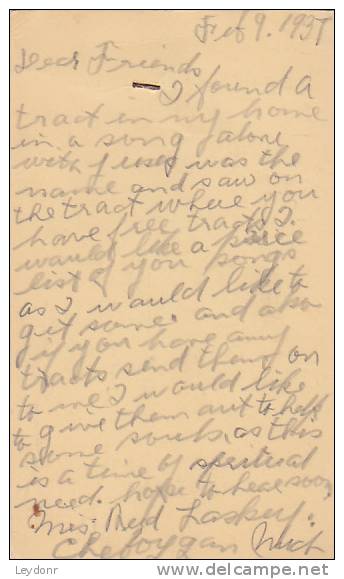 Feb 9. 1951
Dear Friends
I found a
tract in my home
in a song alone
with Jesus was the
name and saw on
the tract where you
have free tracts I
would like a price
list of you songs
as I would like to
get some. and also
if you have any
tracts send them on
to me I would like
to give them out to help
some souls. as this
is a time of spiritual
need. hope to hear soon
Mrs. Laskey.
Cheboygan Mich
Leydonr
delcampe.net